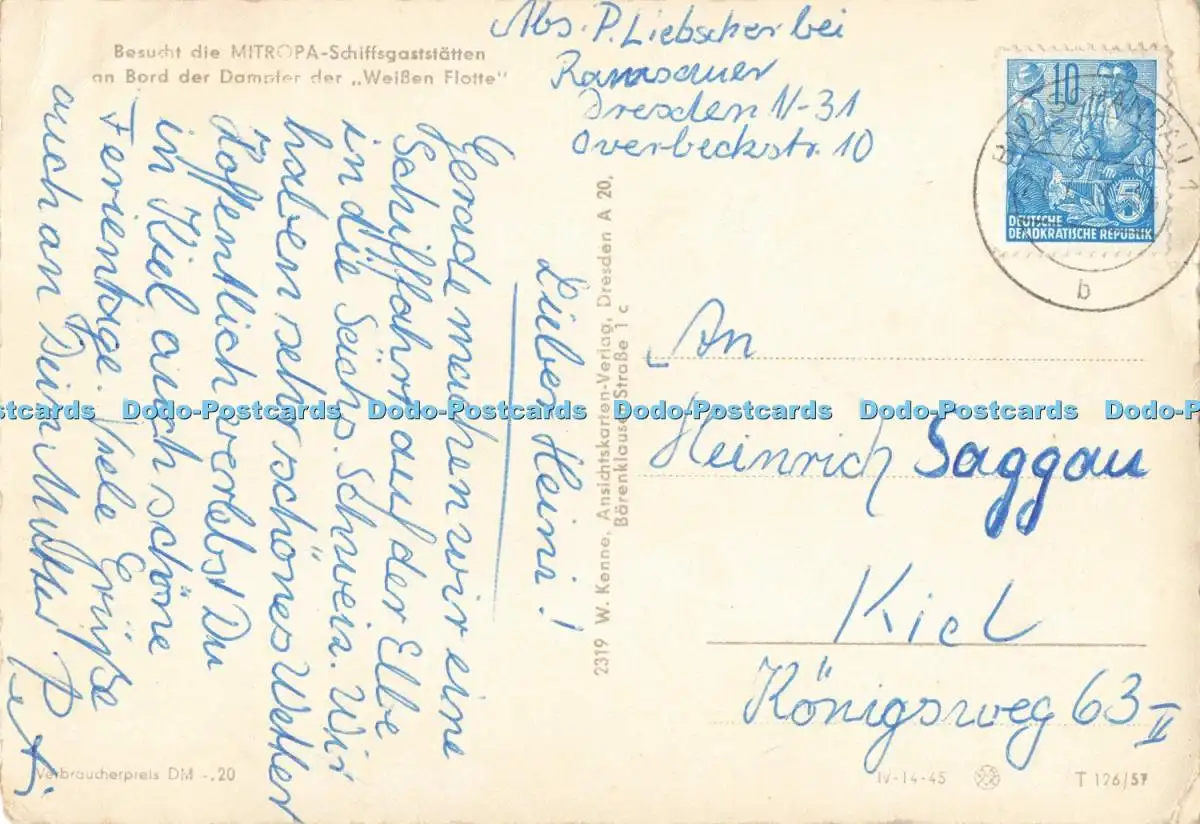 Besucht die MITROPA-Schiffsgaststätten
an Bord der Dampfer der „Weißen Flotte“
Abs. P. Liebscher bei
Ramsauer
Dresden N-31
Overbeckstr. 10
Lieber Heini!
Gerade machen wir eine
Schiffahrt auf der Elbe
in die Sächs. Schweiz. Wir
haben sehr schönes Wetter
Hoffentlich verlebst Du
in Kiel auch schöne
Ferientage. Viele Grüße
auch an Deine Mutter!
2319 W. Kenne, Ansichtskarten-Verlag, Dresden A 20,
Bärenklauser Straße 1 c
10
5
DEUTSCHE
DEMOKRATISCHE REPUBLIK
BAD SCHANDAU 1
b
An
Heinrich Saggau
Kiel
Königsweg 63 II
Verbraucherpreis DM -.20
IV-14-45
T 126/57
Dodo-Postcards Dodo-Postcards Dodo-Postcards Dodo-Postcards